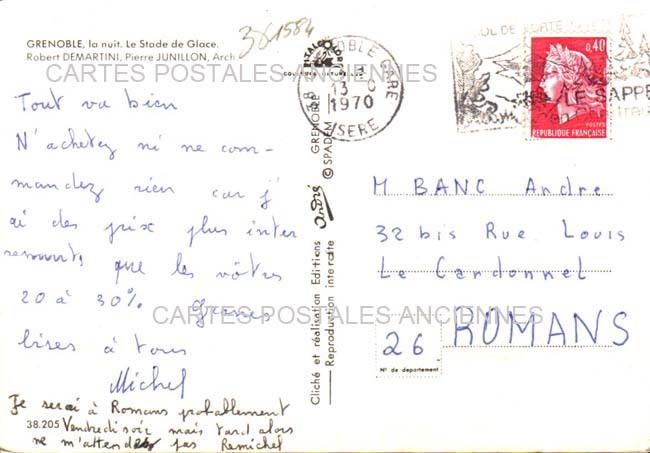 381584
GRENOBLE, la nuit. Le Stade de Glace.
Robert DEMARTINI, Pierre JUNILLON, Arch.
CARTES POSTALES ANCIENNES
Tout va bien
N'achetez ni ne com-
mandez rien car j'
ai des prix plus inter
ressants que les vôtres
20 à 30%
CARTES POSTALES ANCIENNES
à tous
Michel
Je serai à Romans probablement
38.205 Vendredi soir mais tard alors
ne m'attendez pas Remichel
Cliché et réalisation Editions André GRENOBLE
Reproduction interdite © SPADEM
38 GRENOBLE GARE
13
1970
ISERE
0,40
POSTES
REPUBLIQUE FRANÇAISE
M BANC Andre
32 bis Rue Louis
Le Cardonnel
26 ROMANS
N° de departement